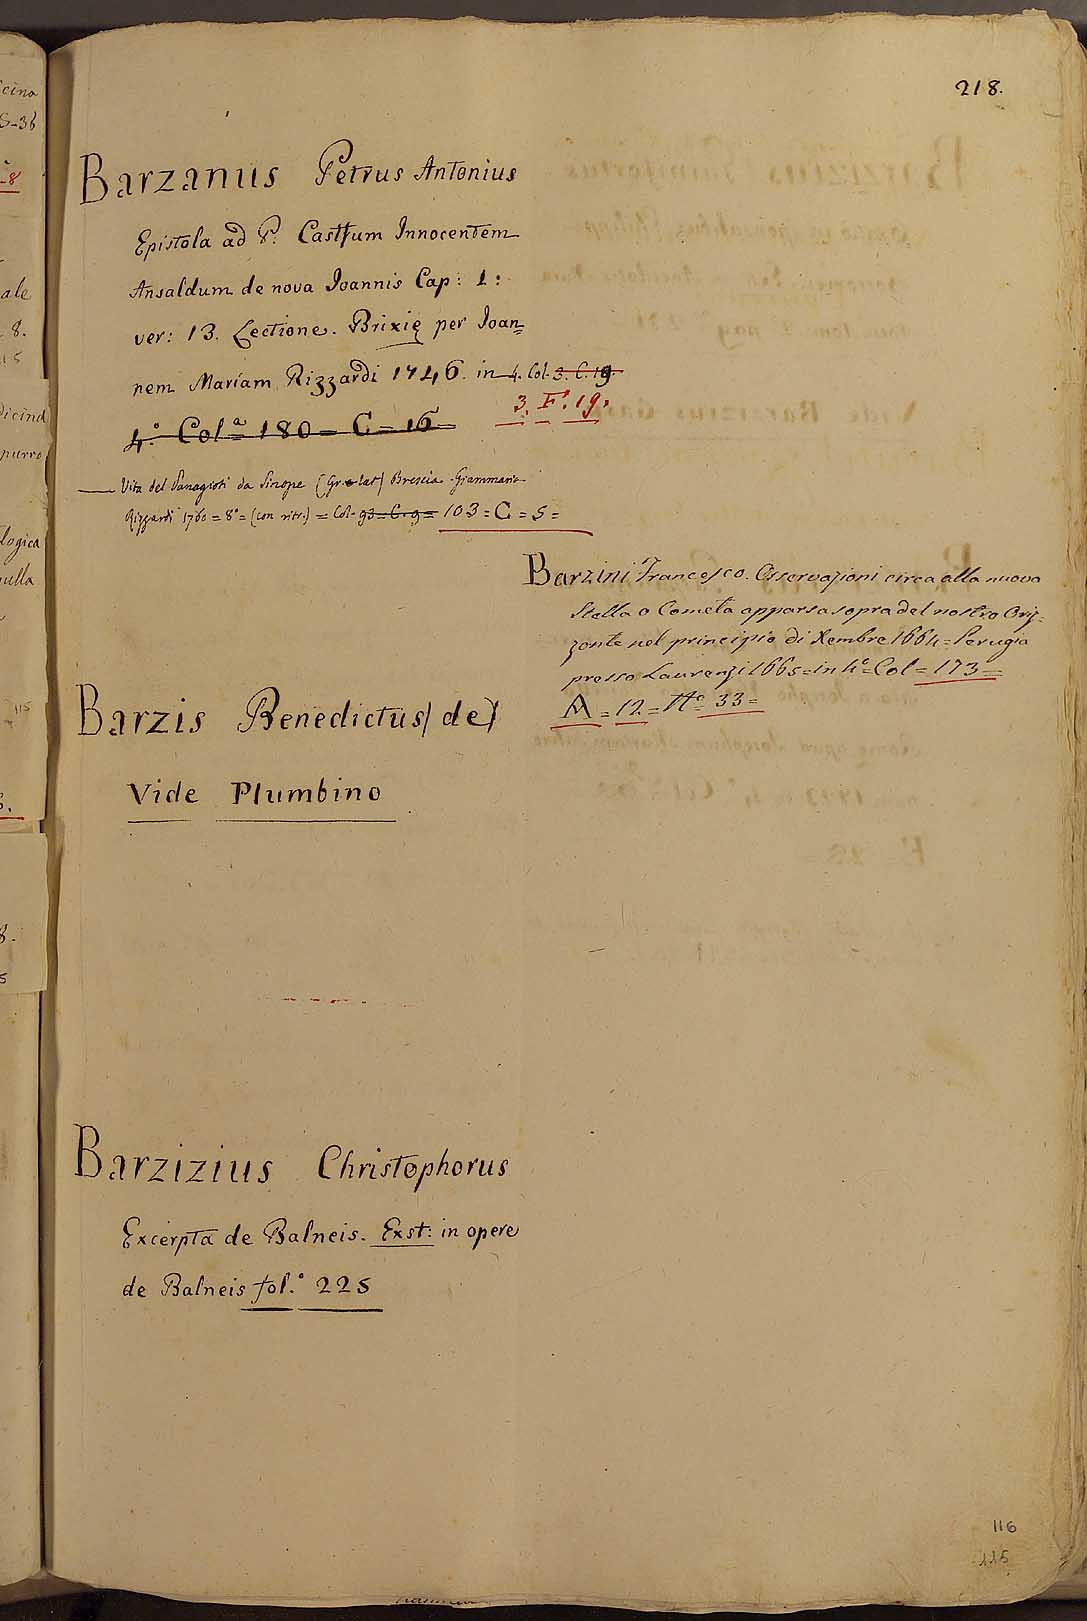 218.
Barzanus Petrus Antonius
Epistola ad P. Castum Innocentem
Ansaldum de nova Joannis Cap: 1:
ver: 13. Lectione. Brixię per Joan=
nem Mariam Rizzardi 1746. in 4. Col. 3. C. 19.
3. F. 19.
4.º Colª 180 = C = 16
Vita del Panagioti da Sinope (Gr. e lat) Brescia Giammaria
Rizzardi 1760 = 8º = (con ritr.) = Col. 93 = C. 9 = 103 = C = 5 =
Barzini Francesco. Osservazioni circa alla nuova
Stella o Cometa apparsa sopra del nostro Oriz=
zonte nel principio di Xembre 1664 = Perugia
presso Laurenzi 1665 = in 4º = Col = 173 =
A = 12 = Nº 33 =
Barzis Benedictus (de)
Vide Plumbino
Barzizius Christophorus
Excerpta de Balneis. Exst: in opere
de Balneis fol.º 225
116
115